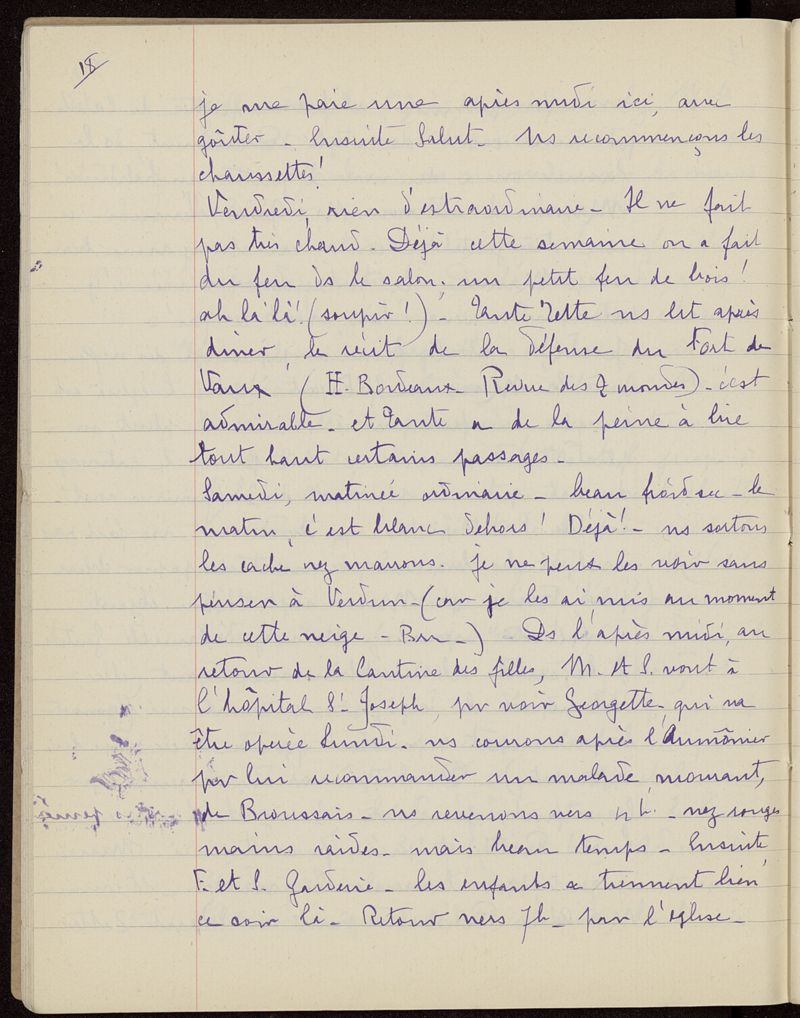 18
je me paie une après midi ici, avec
goûter - Ensuite Salut - Ns recommençons les
chaussettes!
Vendredi, rien d'extraordinaire - Il ne fait
pas très chaud. Déjà cette semaine on a fait
du feu ds le salon. un petit feu de bois!
ah là là! (soupir!) - Tante Zette ns lit après
dîner, le récit de la défense du Fort de
Vaux (H. Bordeaux - Revue des 2 mondes) - c'est
admirable - et Tante a de la peine à lire
tout haut certains passages -
Samedi, matinée ordinaire - beau froid sec - le
matin, c'est blanc dehors! Déjà! - ns sortons
les cache nez marrons. je ne peux les voir sans
penser à Verdun - (car je les ai mis au moment
de cette neige - Brr -) - Ds l'après midi, au
retour de la Cantine des filles, M. et S. vont à
l'hôpital St Joseph, pr voir Georgette, qui va
être opérée lundi. ns courons après l'Aumônier
pr lui recommander un malade, mourant,
de Broussais - ns revenons vers 4h - nez rouges
mains raides - mais beau temps - Ensuite,
F. et S. Garderie - les enfants se tiennent bien
ce soir là - Retour vers 7h - par l'église -